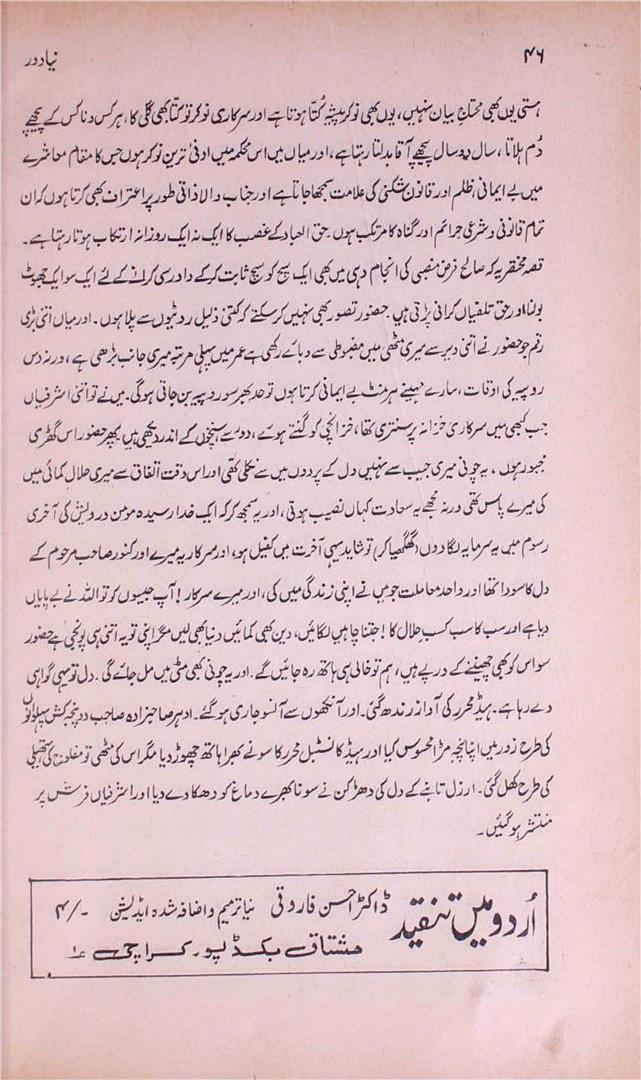 ۴۶
نیا دور
ہستی یوں بھی محتاجِ بیان نہیں، یوں بھی نوکر پیشہ کُتّا ہوتا ہے اور سرکاری نوکر تو کتّا بھی گلی کا، ہر کس و ناکس کے پیچھے
دُم ہلاتا، سال دو سال پیچھے آقا بدلتا رہتا ہے، اور میاں میں اس محکمہ میں ادنیٰ ترین نوکر ہوں جس کا مقام معاشرے
میں بے ایمانی، ظلم اور قانون شکنی کی علامت سمجھا جاتا ہے اور جناب والا ذاتی طور پر اعتراف بھی کرتا ہوں کہ ان
تمام قانونی و شرعی جرائم اور گناہ کا مرتکب ہوں۔ حق العباد کے غصب کا ایک نہ ایک روزانہ ارتکاب ہوتا رہتا ہے۔
قصہ مختصر یہ کہ صالح فرض منصبی کی انجام دہی میں بھی ایک سچ کو سچ ثابت کر کے دادرسی کرانے کے لئے ایک سو ایک جھوٹ
بولنا اور حق تلفیاں کرانی پڑتی ہیں۔ حضور تصور بھی نہیں کر سکتے کہ کتنی ذلیل روٹیوں سے پلا ہوں۔ اور میاں اتنی بڑی
رقم جو حضور نے اتنی دیر سے میری مٹھی میں مضبوطی سے دبائے رکھی ہے عمر میں پہلی مرتبہ میری جانب بڑھی ہے، ورنہ دس
روپیہ کی اوقات، سارے مہینے ہر منٹ بے ایمانی کرتا ہوں تو حد بھر سو روپیہ بن جاتی ہوگی۔ میں نے تو اتنی اشرفیاں
جب کبھی میں سرکاری خزانہ پر سنتری تھا، خزانچی کو گنتے ہوئے، دور سے سینچوں کے اندر دیکھی ہیں پھر حضور اس گھڑی
مجبور ہوں، یہ چونی میری جیب سے نہیں دل کے پردوں میں سے نکلی تھی اور اس وقت اتفاق سے میری حلال کمائی میں
کی میرے پاس تھی ورنہ مجھے یہ سعادت کہاں نصیب ہوتی، اور یہ سمجھ کر کہ ایک خدا رسیدہ مومن درویش کی آخری
رسوم میں یہ سرمایہ لگا دوں (گھگھیا کر) تو شاید یہی آخرت میں کفیل ہو، اور سرکار یہ میرے اور کنور صاحب مرحوم کے
دل کا سودا تھا اور واحد معاملت جو میں نے اپنی زندگی میں کی، اور میرے سرکار! آپ جیسوں کو تو اللہ نے بے پایاں
دیا ہے اور سب کا سب کسبِ حلال کا! جتنا چاہیں لگائیں، دین بھی کمائیں دنیا بھی لیں مگر اپنی تو یہ اتنی ہی پونجی ہے حضور
سو اس کو بھی چھیننے کے درپے ہیں، ہم تو خالی ہی ہاتھ رہ جائیں گے۔ اور یہ چونی بھی مٹی میں مل جائے گی۔ دل تو یہی گواہی
دے رہا ہے۔ ہیڈ محرر کی آواز رندھ گئی۔ اور آنکھوں سے آنسو جاری ہو گئے۔ ادہر صاحبزادہ صاحب دو پنجہ کش پہلوانوں
کی طرح زور میں اپنا پنجہ مڑا محسوس کیا اور ہیڈ کانسٹبل محرر کا سونے بھرا ہاتھ چھوڑ دیا مگر اس کی مٹھی تو مفلوج کی ہتھیلی
کی طرح کھل گئی۔ ارزل تانبے کے دل کی دھڑکن نے سونا بھرے دماغ کو دھکا دے دیا اور اشرفیاں فرش پر
منتشر ہو گئیں۔
اُردو میں تنقید
ڈاکٹر احسن فاروقی نیا ترمیم و اضافہ شدہ ایڈیشن ۴/-
مشتاق بکڈپو۔ کراچی ۱